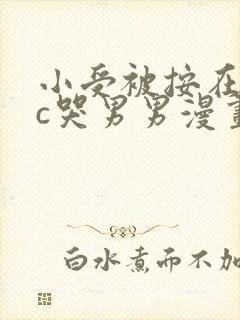 小受被按在
c哭男男漫画
白水煮而不加